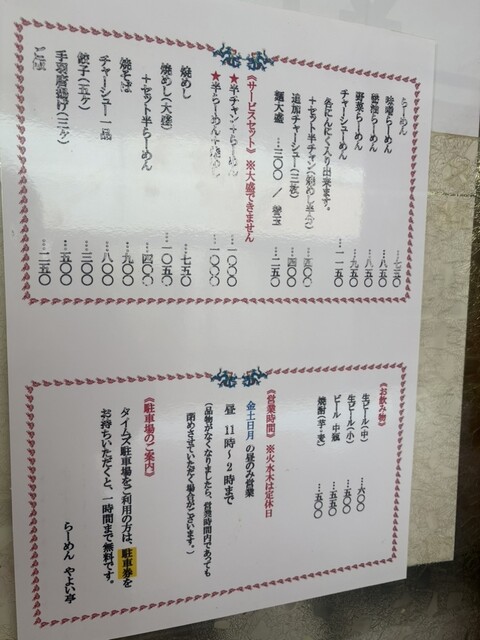 らーめん …七五〇
味噌らーめん …八五〇
野菜らーめん …九五〇
チャーシューめん …一一五〇
各にんにく入り出来ます。
+セット半チャン(焼めし半分) …四〇〇
追加チャーシュー(三枚) …四〇〇
麺大盛 …三〇〇 / 替玉 …二五〇
《サービスセット》 ※大盛できません
★半チャン+らーめん …一〇〇〇
★半らーめん+焼めし …一〇〇〇
焼めし …七五〇
焼めし(大盛) …一〇五〇
+セット半らーめん …四〇〇
焼そば …九〇〇
チャーシュー一品 …八〇〇
餃子(五ヶ) …三〇〇
手羽唐揚げ(三ヶ) …五〇〇
…二五〇
《お飲み物》
生ビール(中) …六〇〇
生ビール(小) …五〇〇
ビール 中瓶 …五五〇
焼酎(芋・麦) …五〇〇
《営業時間》 ※火水木は定休日
金土日月の昼のみ営業
昼 11時~2時まで
(品物がなくなりましたら、営業時間内であっても
閉めさせていただく場合がございます。)
《駐車場のご案内》
タイムズ駐車場をご利用の方は、駐車券を
お持ちいただくと、一時間まで無料です。
らーめん やよい亭